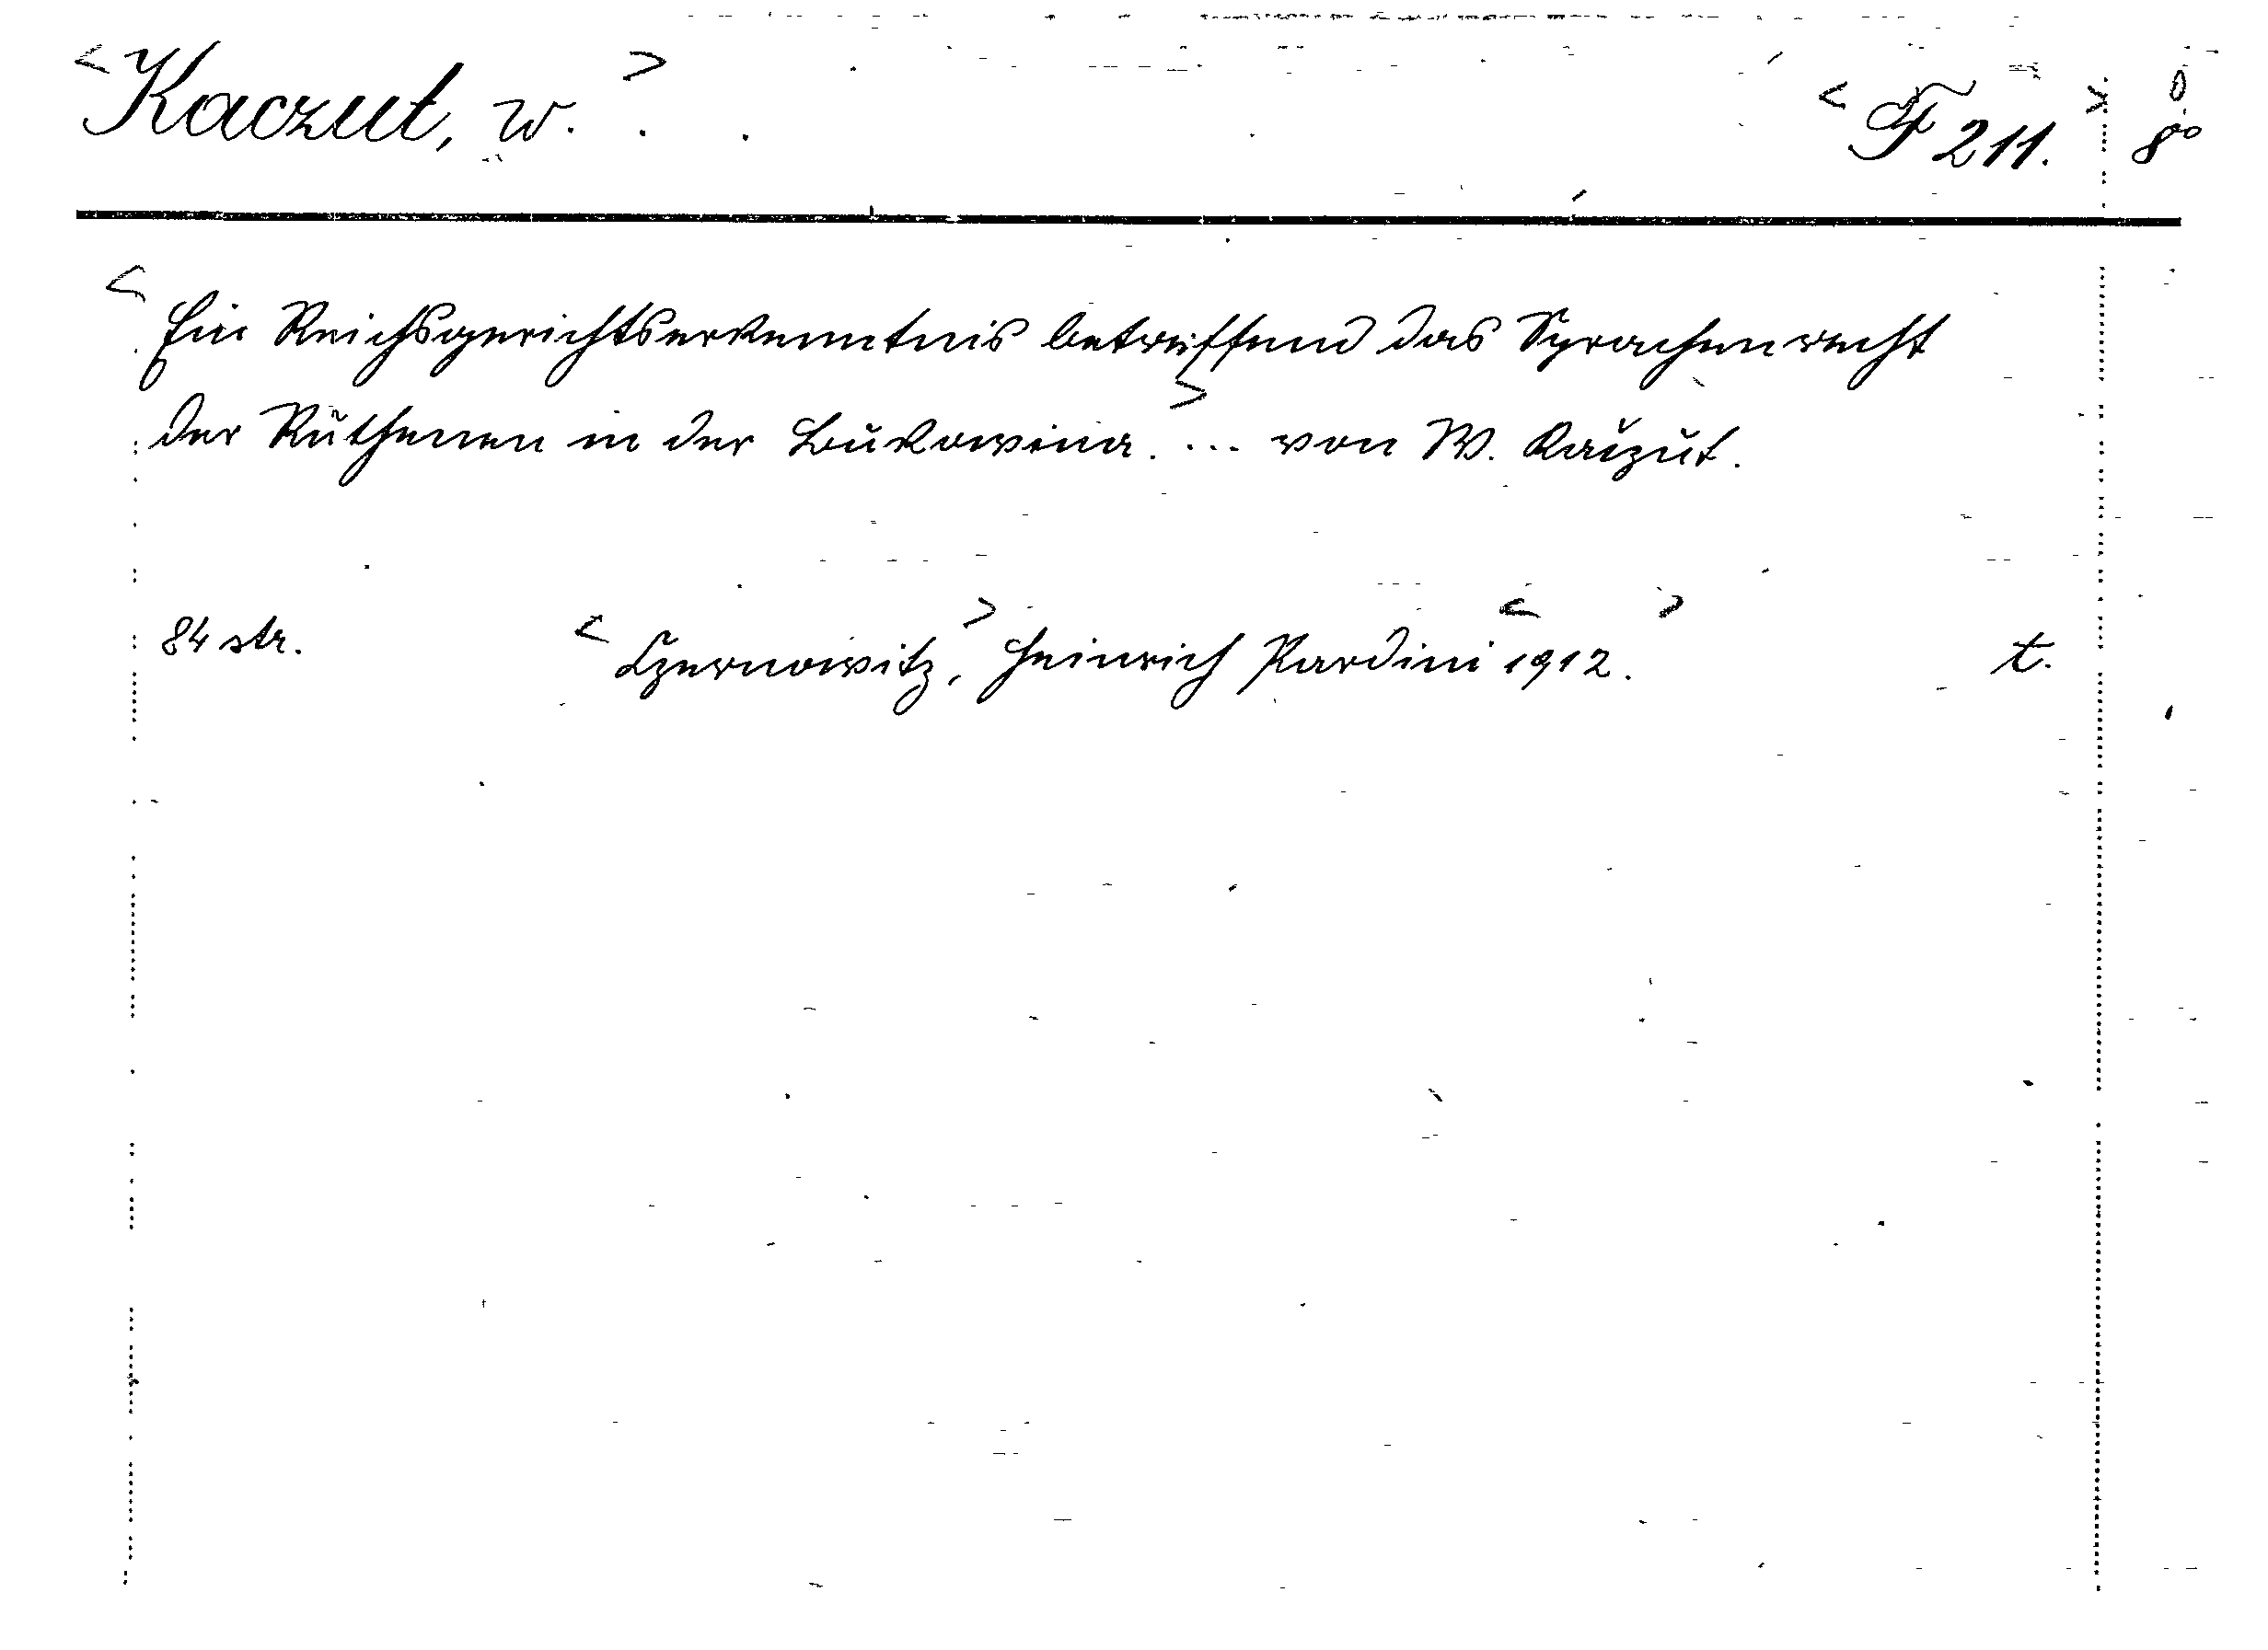 <Kaczut, W.> <F 211.> 8°
<Ein Reichsgerichtserkenntnis betreffend das Sprachenrecht
der Ruthenen in der Bukowina.> ... von W. Kaczut.
84 str. <Czernowitz,> Heinrich Pardini <1912.> t.